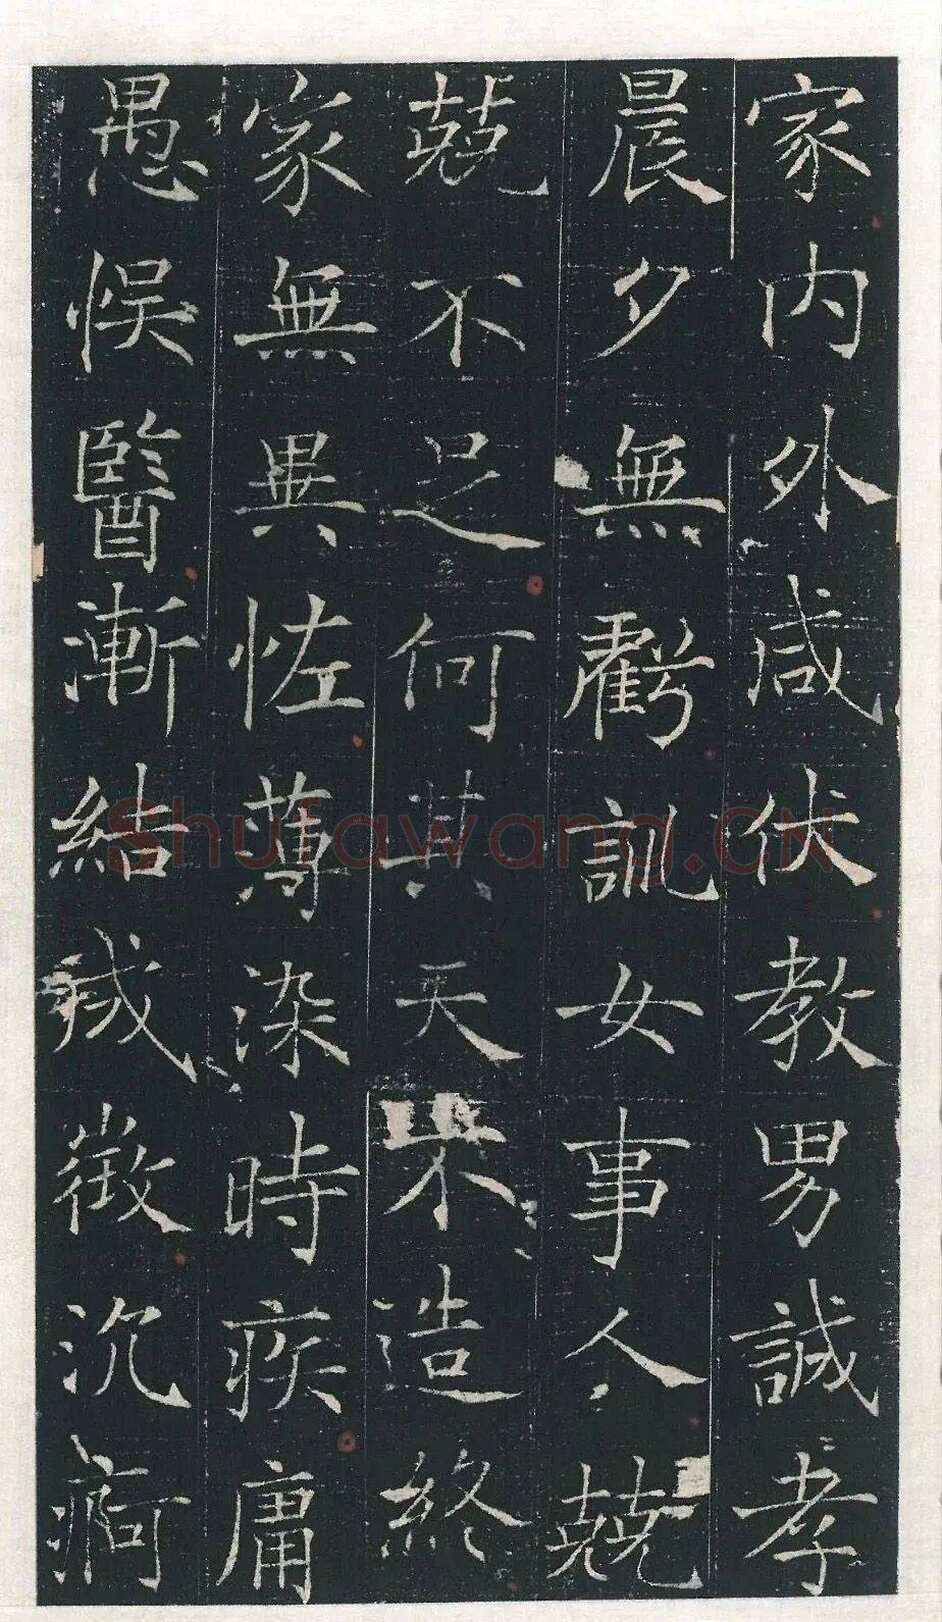 家内外咸伏教男誠孝
晨夕無虧訓女事人兢
兢不足何其天不造終
家無異怪薄染時疾庸
愚悮醫漸結成徴沉痾
Shufawang.CN